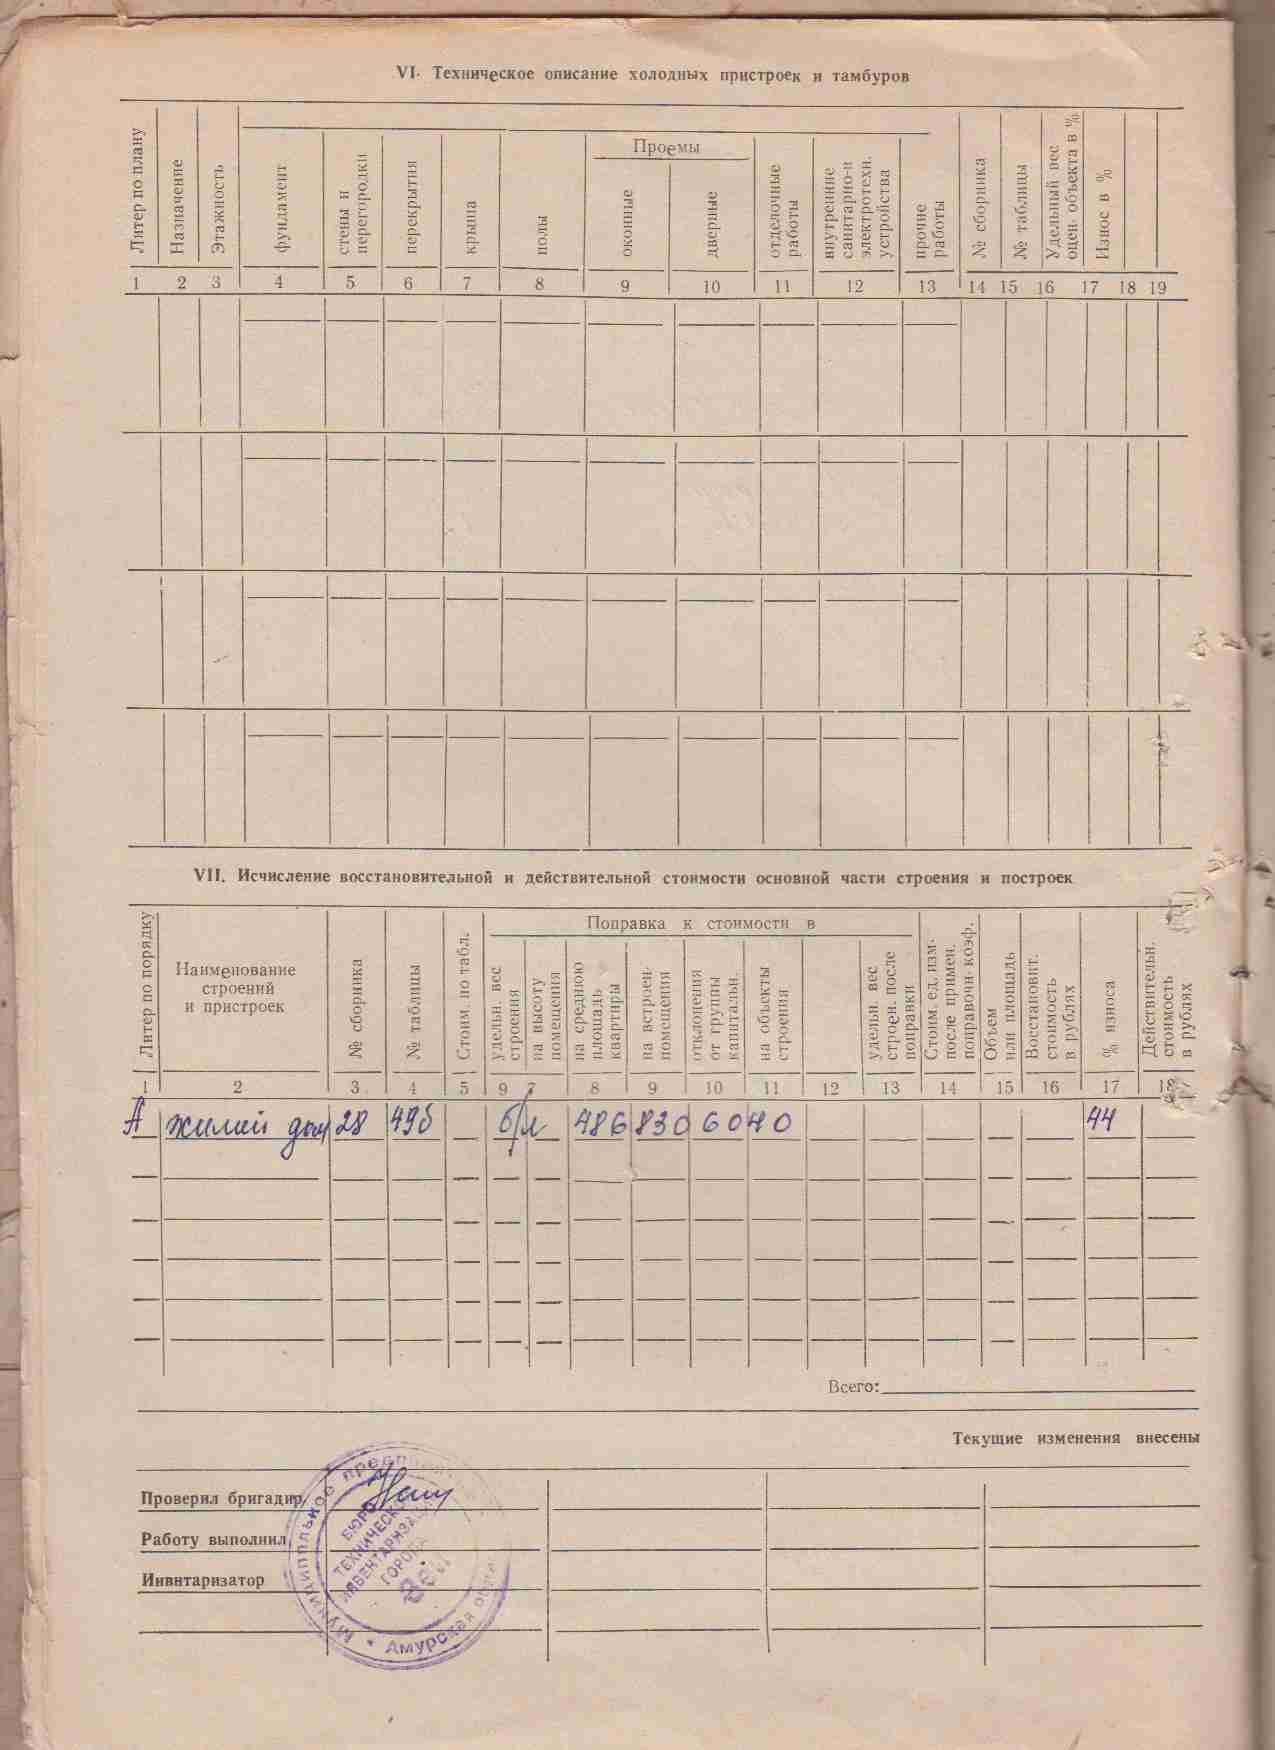 VI. Техническое описание холодных пристроек и тамбуров
Литер по плану
Назначение
Этажность
фундамент
стены и
перегородки
перекрытия
крыша
полы
Проемы
оконные
дверные
отделочные
работы
внутренние
санитарно-и
электротехн.
устройства
прочие
работы
№ сборника
№ таблицы
Удельный вес
оцен. объекта в %
Износ в %
1 2 3 4 5 6 7 8 9 10 11 12 13 14 15 16 17 18 19
VII. Исчисление восстановительной и действительной стоимости основной части строения и построек
Литер по порядку
Наименование
строений
и пристроек
№ сборника
№ таблицы
Стоим. по табл.
Поправка к стоимости в
удельн. вес
строения
на высоту
помещения
на среднюю
площадь
квартиры
на встроен-
помещения
отклонения
от группы
капитальн.
на объекты
строения
удельн. вес
строен. после
поправки
Стоим. ед. изм-
после примен.
поправочн. коэф.
Объем
или площадь
Восстановит.
стоимость
в рублях
% износа
Действительн.
стоимость
в рублях
1 2 3 4 5 9 7 8 9 10 11 12 13 14 15 16 17 18
А жилой дом 28 49б б/л 486 830 60 40 44
Всего:
Текущие изменения внесены
Проверил бригадир
Работу выполнил
Инвнтаризатор
Муниципальное предпри
БЮРО
ТЕХНИЧЕСКО
ИНВЕНТАРИЗАЦИ
ГОРОДА
Амурская обл